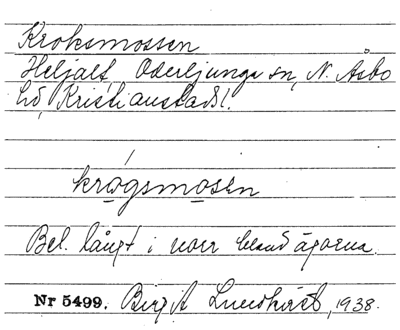 Kroksmossen
Heljalt, Oderljunga sn, N. Åsbo
hd, Kristianstadsl.
krȧgsmosen
Bel. långt i norr bland ägorna.
Nr 5499. Birgit Lundkvist, 1938.